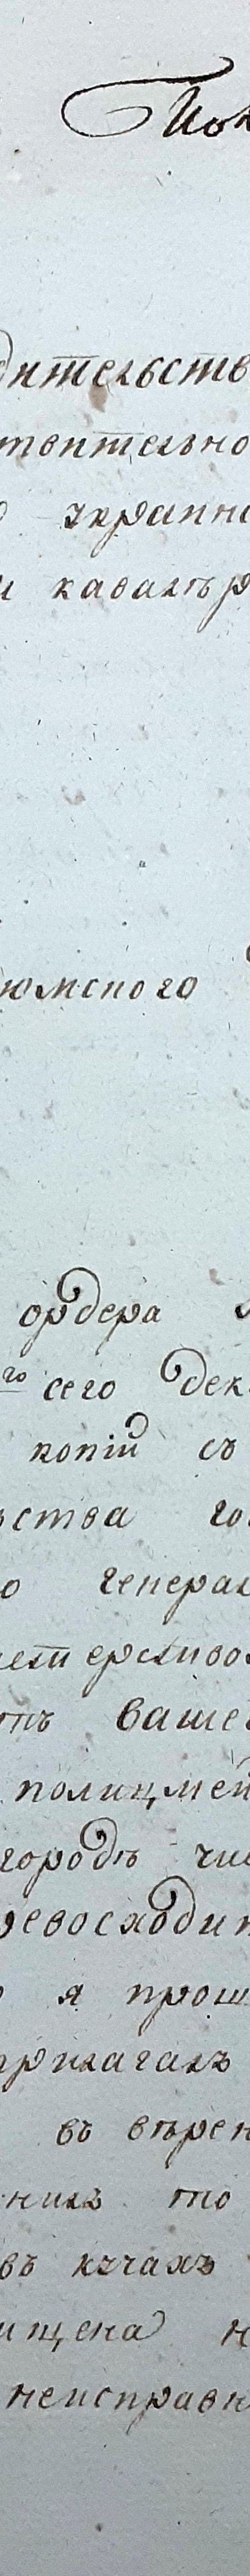 Пок
дительств
твительно
украпн
и кавалѣр
юмского
ордера
го сего дек
копіи съ
ства го
о генерал
мейстерства
отъ ваше
полицмей
городѣ чи
ревосходит
о я прош
прилагалъ
въ вѣрен
нилъ то
въ кучахъ
ищена н
неисправн